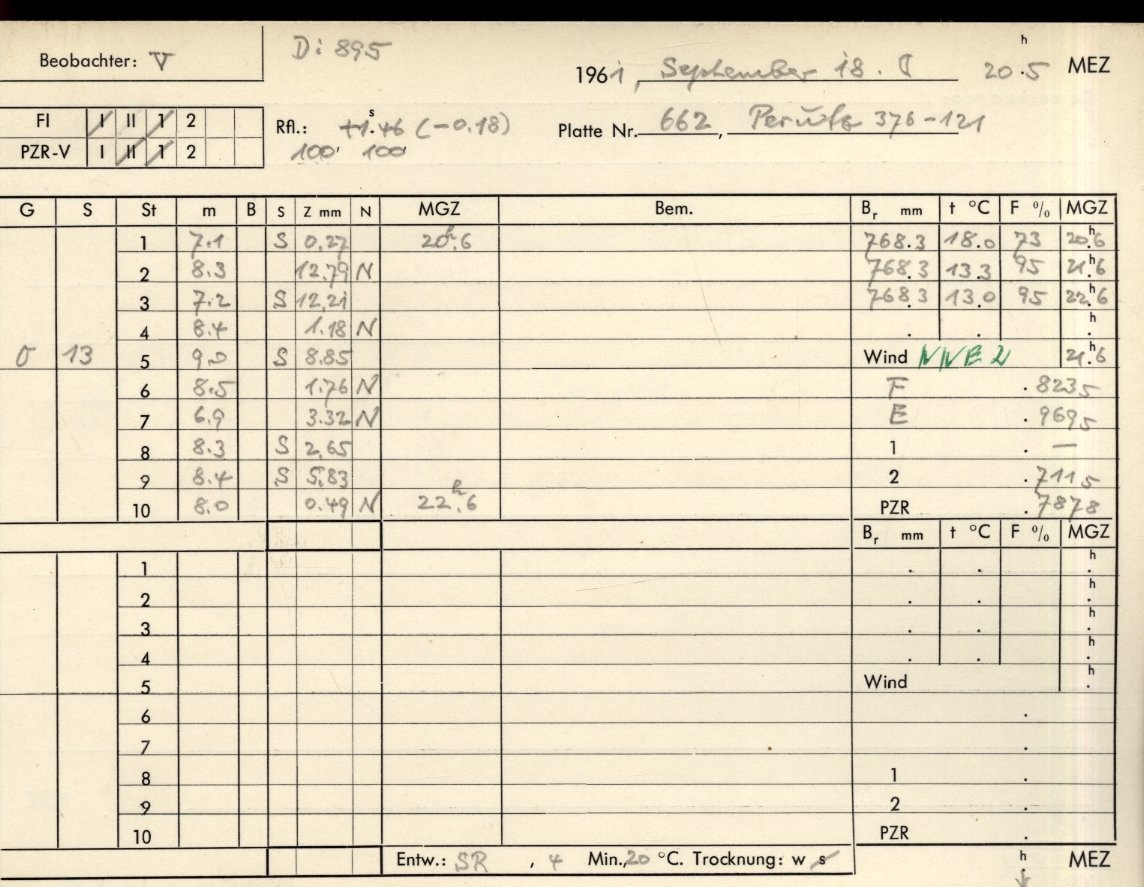 Beobachter: V
Di 895
1961, September 18. 20h.5 MEZ
FI I II 1 2
PZR-V I II 1 2
Rfl.: +1s.46 (-0.18)
100' 100
Platte Nr. 662, Perutz 376-121
G S St m B S Z mm N MGZ Bem. Br mm t °C F % MGZ
1 7.1 S 0.27 20h.6 768.3 18.0 73 20h.6
2 8.3 12.79 N 768.3 13.3 95 21h.6
3 7.2 S 12.21 768.3 13.0 95 22h.6
4 8.4 1.18 N . . h.
13 5 9.0 S 8.85 Wind NNE 2 21h.6
6 8.5 1.76 N F .8235
7 6.9 3.32 N E .9695
8 8.3 S 2.65 1 . —
9 8.4 S 5.83 2 .7115
10 8.0 0.49 N 22h.6 PZR .7878
Br mm t °C F % MGZ
1 . . h.
2 . . h.
3 . . h.
4 . . h.
5 Wind h.
6 .
7 .
8 1 .
9 2 .
10 PZR .
Entw.: SR , 4 Min., 20 °C. Trocknung: w s h. MEZ